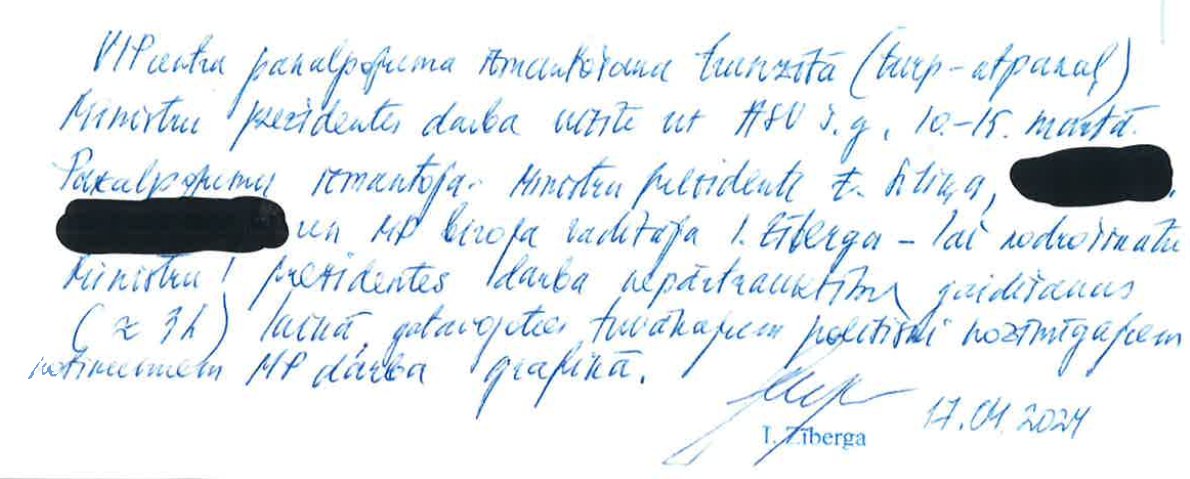 VIP centra pakalpojuma izmantošana tranzītā (turp-atpakaļ)
Ministru prezidentes darba vizītē uz ASV š.g. 10.-15. martā.
Pakalpojumu izmantoja- Ministru prezidente E. Siliņa,
un MP biroja vadītāja I. Zīberga - lai nodrošinātu
Ministru prezidentes darba nepārtrauktību gaidīšanas
(≈ 3h) laikā, gatavojoties tuvākajiem politiski nozīmīgajiem
notikumiem MP darba grafikā.
I. Zīberga 17.04.2024